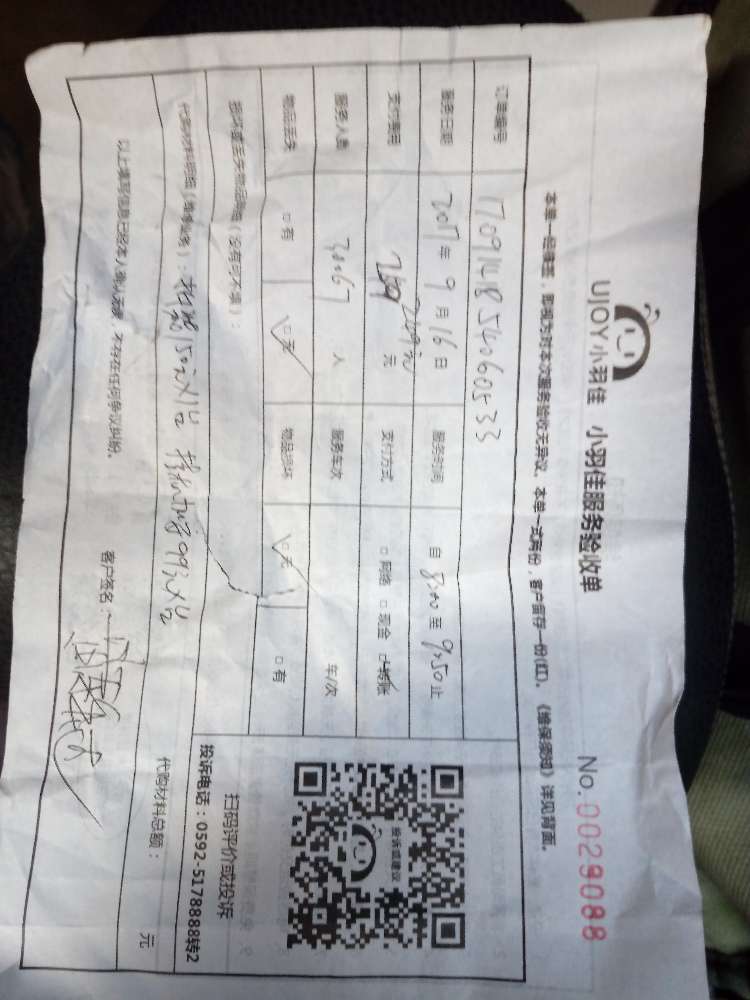 UJOY小羽佳 小羽佳服务验收单 No.0029088
本单一经填签，即视为对本次服务验收无异议。本单一式两份，客户留存一份(红)。《维保须知》详见背面。
订单编号 1709141854060533
服务日期 2017年9月16日 服务时间 自 8:00 至 9:50 止
支付费用 249元 元 支付方式 □ 网络 □ 现金 ☑ 转账
服务人员 30067 人 服务车次 车/次
物品丢失 □ 有 ☑ 无 物品损坏 ☑ 无 □ 有
损坏或丢失物品明细（没有可不填）：
150元X1台 99元X1台
代购材料总额： 元
以上填写信息已经本人确认无误，不存在任何争议纠纷。 客户签名：
投诉或建议
扫码评价或投诉
投诉电话：0592-5178888转2